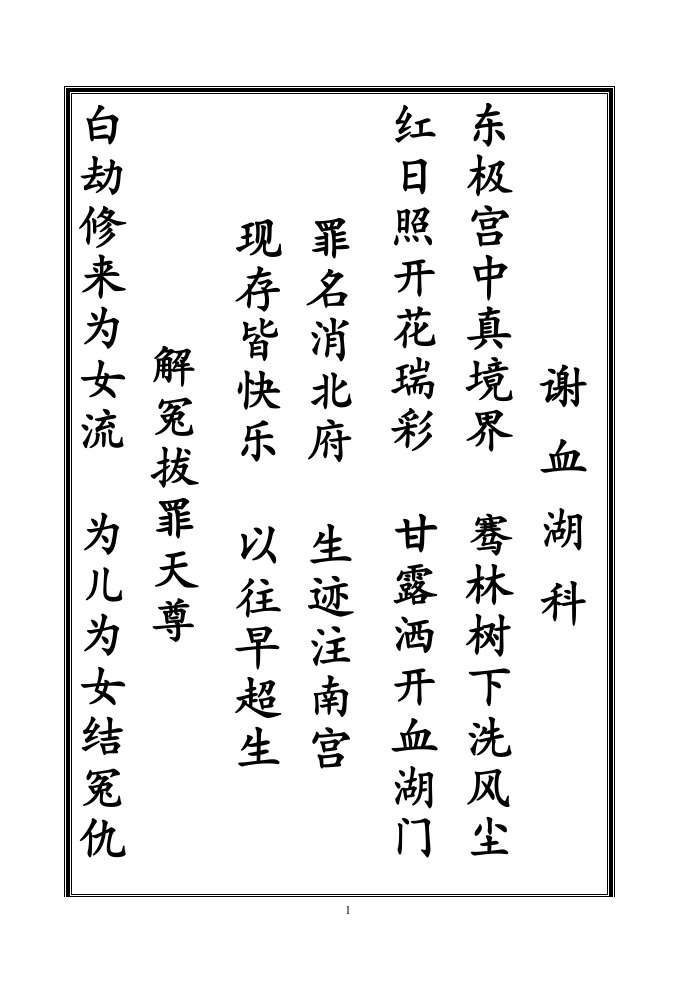 谢血湖科
东极宫中真境界 骞林树下洗风尘
红日照开花瑞彩 甘露洒开血湖门
罪名消北府 生迹注南宫
现存皆快乐 以往早超生
解冤拔罪天尊
白劫修来为女流 为儿为女结冤仇
1